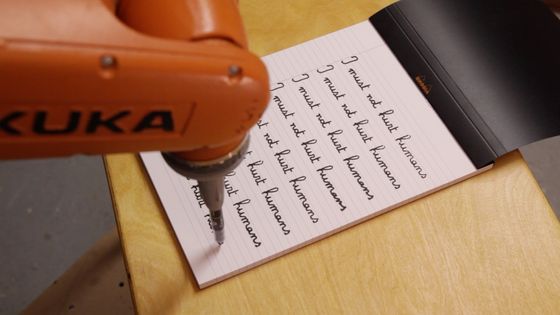 KUKA
I must not hurt humans
I must not hurt humans
I must not hurt humans
I must not hurt humans
not hurt humans
hurt humans
hurt humans
hurt